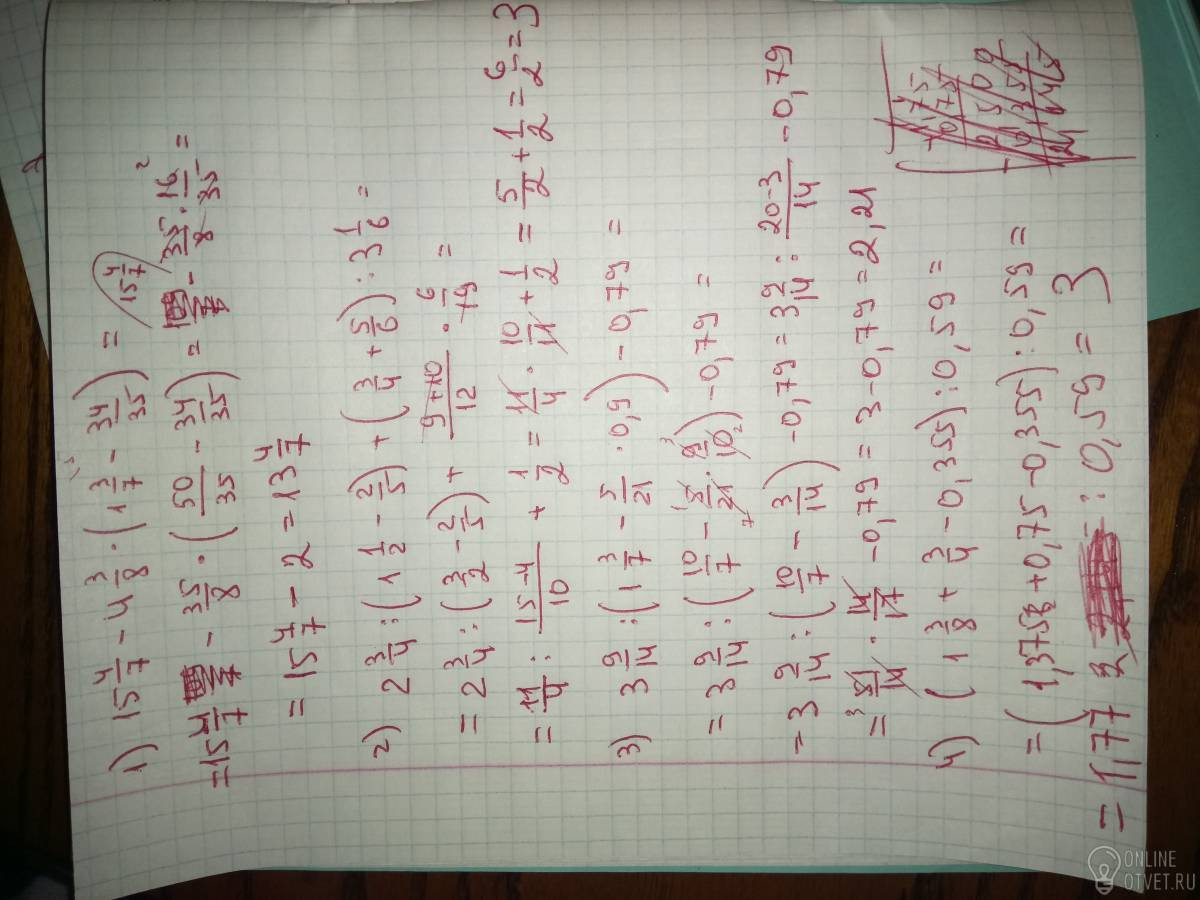 1) 15 4/7 - 4 3/8 · (1 3/7 - 34/35) = 15 4/7
= 15 4/7 - 35/8 · (50/35 - 34/35) = - 35/8 · 16/35 =
= 15 4/7 - 2 = 13 4/7
2) 2 3/4 : (1 1/2 - 2/5) + (3/4 + 5/6) : 3 1/6 =
= 2 3/4 : (3/2 - 2/5) + 9+10/12 · 6/19 =
= 11/4 : 15-4/10 + 1/2 = 11/4 · 10/11 + 1/2 = 5/2 + 1/2 = 6/2 = 3
3) 3 9/14 : (1 3/7 - 5/21 · 0,9) - 0,79 =
= 3 9/14 : (10/7 - 5/21 · 9/10) - 0,79 =
= 3 9/14 : (10/7 - 3/14) - 0,79 = 3 9/14 : 20-3/14 - 0,79
= 51/14 · 14/17 - 0,79 = 3 - 0,79 = 2,21
4) (1 3/8 + 3/4 - 0,355) : 0,59 =
= (1,375 + 0,75 - 0,355) : 0,59 =
= 1,77 : 0,59 = 3
ONLINE
OTVET.RU